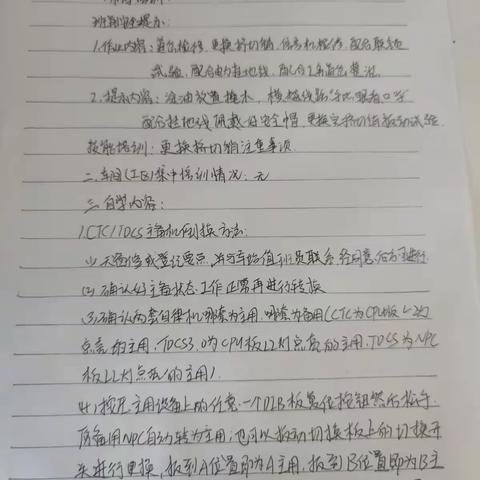 班前安全提示:
1.作业内容:道岔检修、更换挤切销、信号机检修、配合联锁
试验、配合电力挂地线、配合工务道岔整治
2.提示内容:注油放置接水,横越线路"手比眼看口呼"
配合挂地线佩戴好安全帽,更换完挤切销扳动试验
技能培训:更换挤切销注意事项
二、车间(工区)集中培训情况:无
三、自学内容:
1.CTC/TDCS主备机倒换方法:
(1)天窗修或登记要点,并与车站值班员联系,经同意后方可进行
(2)确认好主备状态,工作正常再进行转换
(3)确认两套自律机哪套为主用,哪套为备用(CTC为CPU板L2灯
点亮的主用,TDCS3.0为CPU板L2灯点亮的主用,TDCS为NPC
板L2灯点亮的主用)
(4)按压主用设备上的任意一个DIB板复位按钮然后松手
后备用NPC自动转为主用;也可以扳动切换板上的切换开
来进行更换,扳到A位置即为A主用,扳到B位置即为B主